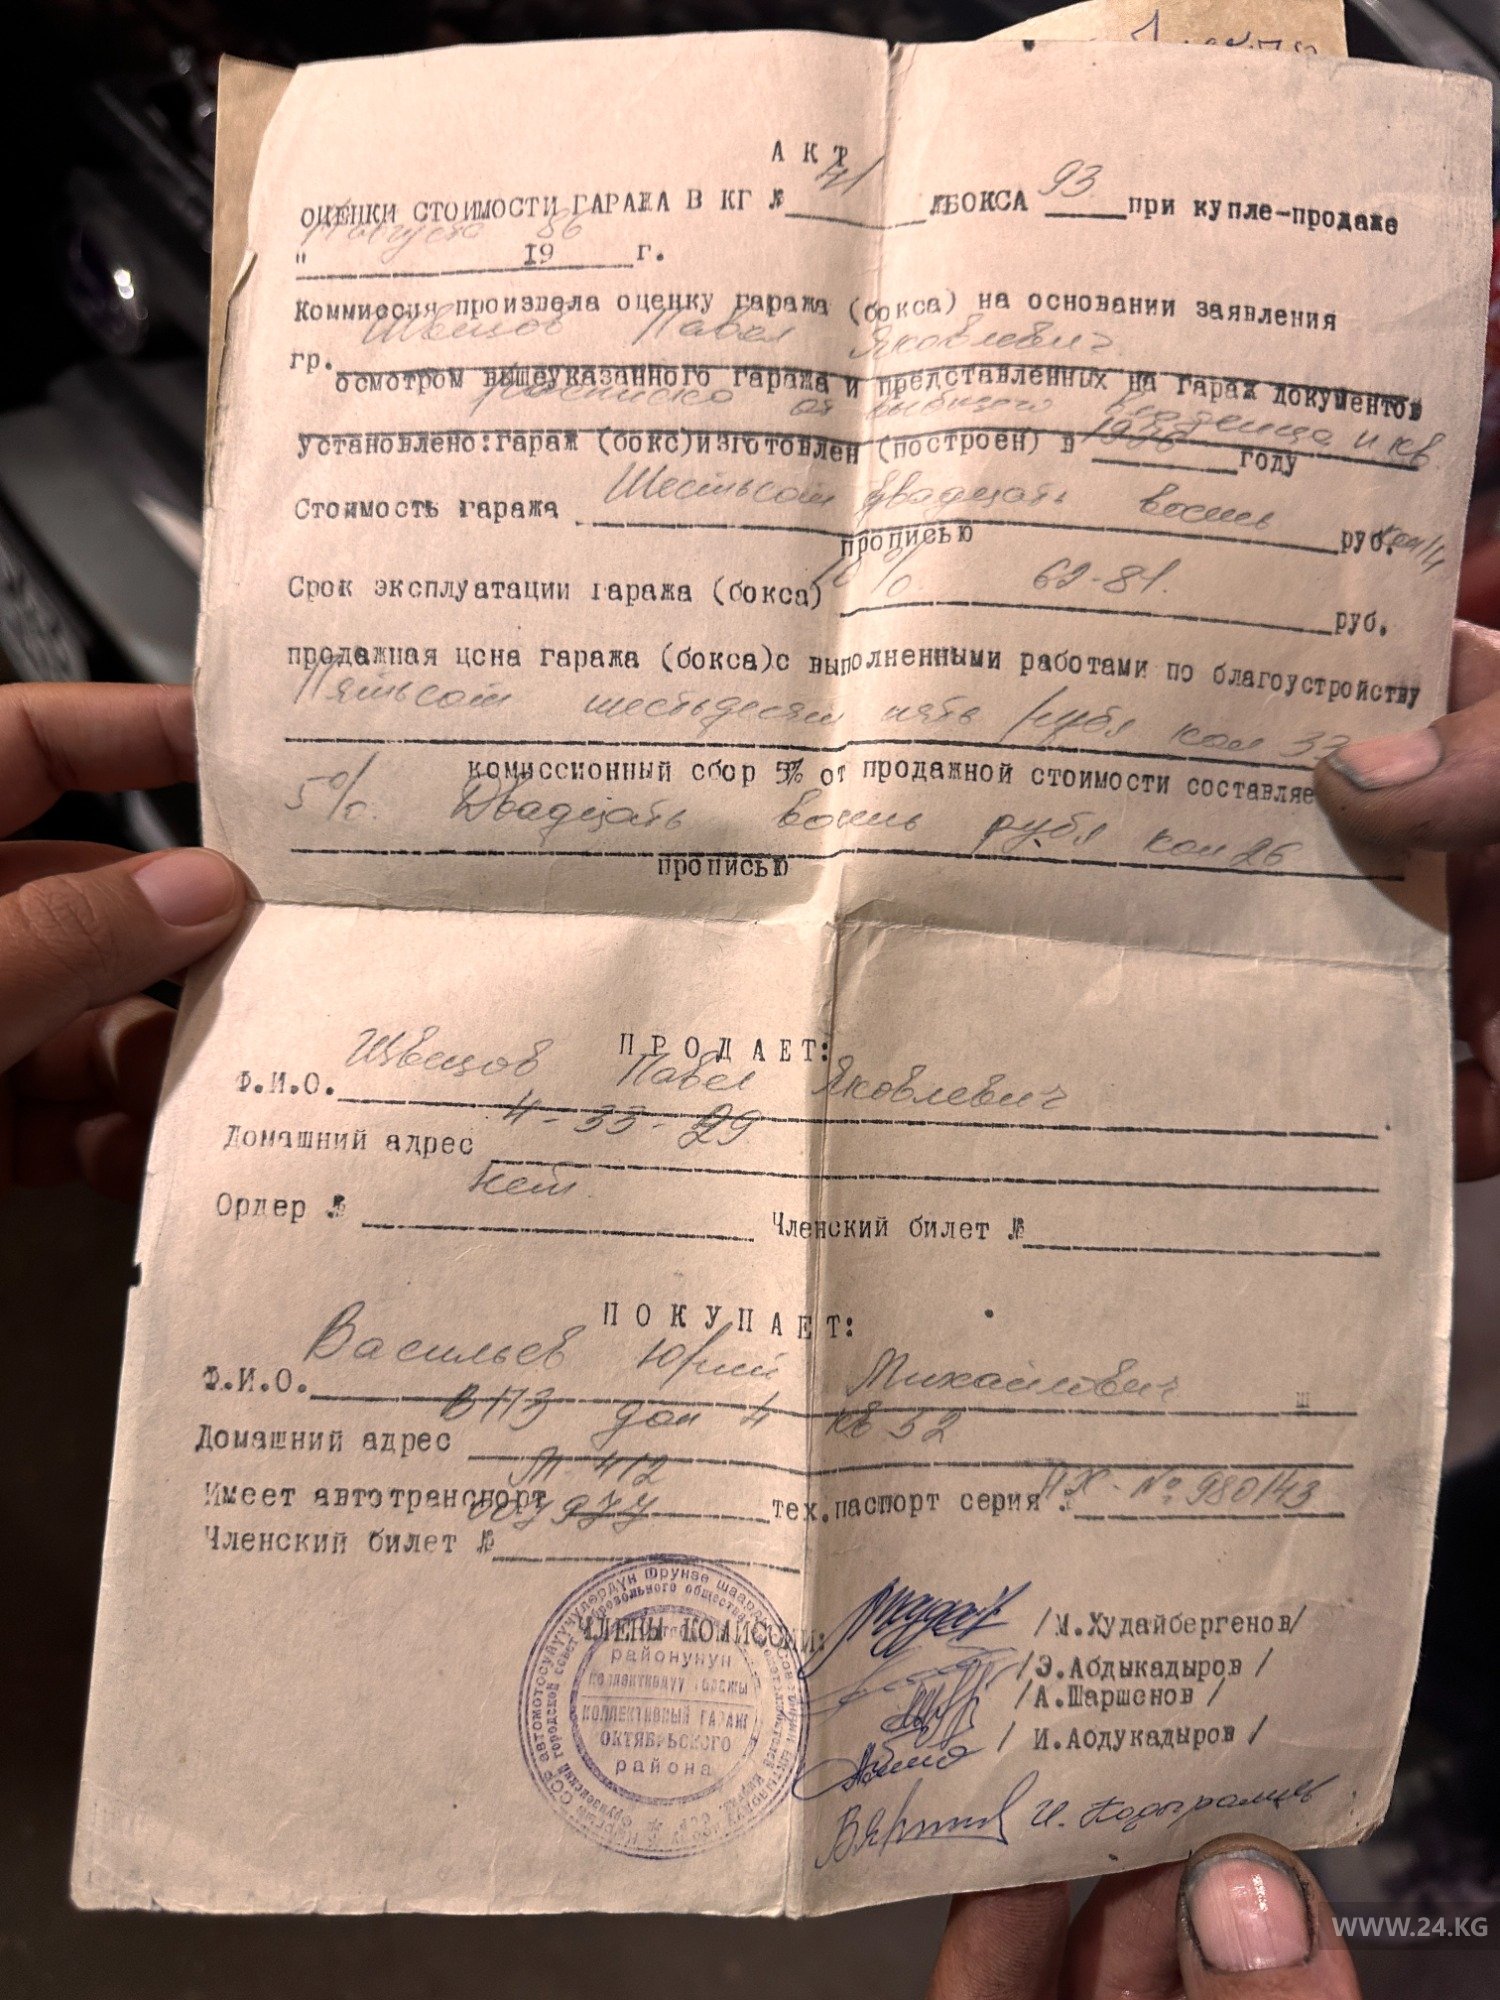 АКТ
ОЦЕНКИ СТОИМОСТИ ГАРАЖА В КГ № 41 №БОКСА 93 при купле-продаже
" августа 1986 г.
Комиссия произвела оценку гаража (бокса) на основании заявления
гр. Швецов Павел Яковлевич
осмотром вышеуказанного гаража и представленных на гараж документов
Установлено: гараж (бокс) изготовлен (построен) в году
Стоимость гаража Шестьсот двадцать восемь руб. коп 14
прописью
Срок эксплуатации гаража (бокса) 10% 62-81. руб.
продажная цена гаража (бокса) с выполненными работами по благоустройству
Пятьсот шестьдесят пять рубл коп 33
комиссионный сбор 5% от продажной стоимости составляе
5%. Двадцать восемь рубл коп 26
прописью
ПРОДАЕТ:
Ф.И.О. Швецов Павел Яковлевич
Домашний адрес 4-33-29
Ордер № нет Членский билет №
ПОКУПАЕТ:
Ф.И.О. Васильев Юрий Михайлович
Домашний адрес дом 4 кв 52
Имеет автотранспорт М-412 тех.паспорт серия № 980143
Членский билет №
ЧЛЕНЫ КОМИССИИ: /М.Худайбергенов/
/Э.Абдыкадыров /
/А.Шаршенов /
/ И.Абдукадыров /
районунун
КОЛЛЕКТИВНЫЙ ГАРАЖ
ОКТЯБРЬСКОГО
района
WWW.24.KG